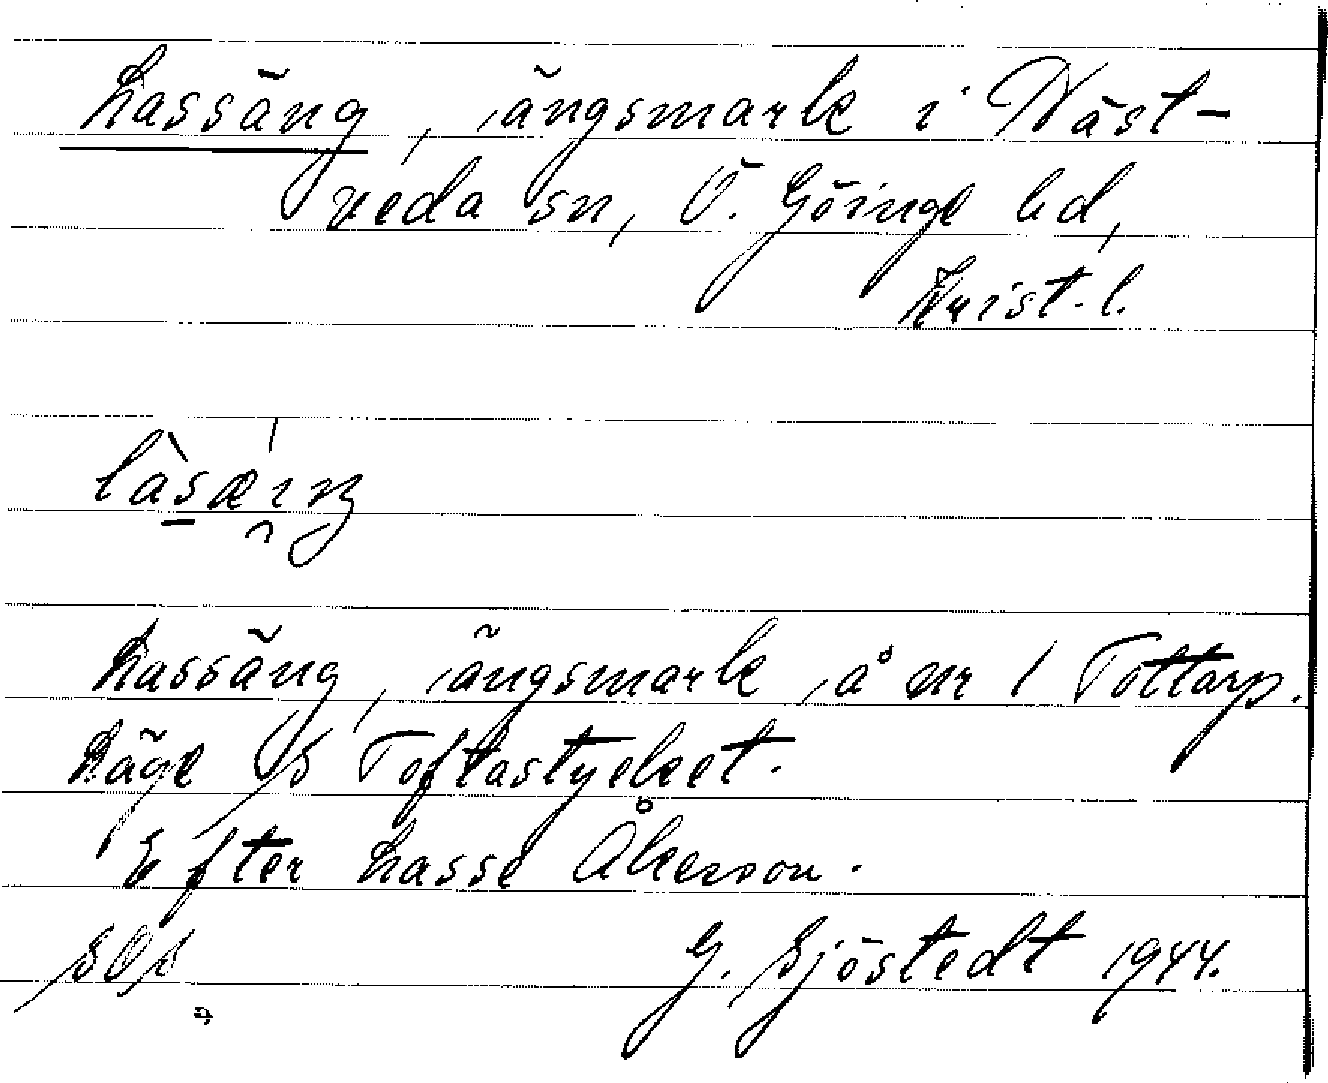 Lassäng, ängsmark i Näst-
veda sn, Ö. Göinge hd,
Krist. l.
làsæıŋ
Lassäng, ängsmark å nr 1 Tottarp.
Läge SO Toftastycket.
Efter Lasse Åkerson.
G. Sjöstedt 1944.